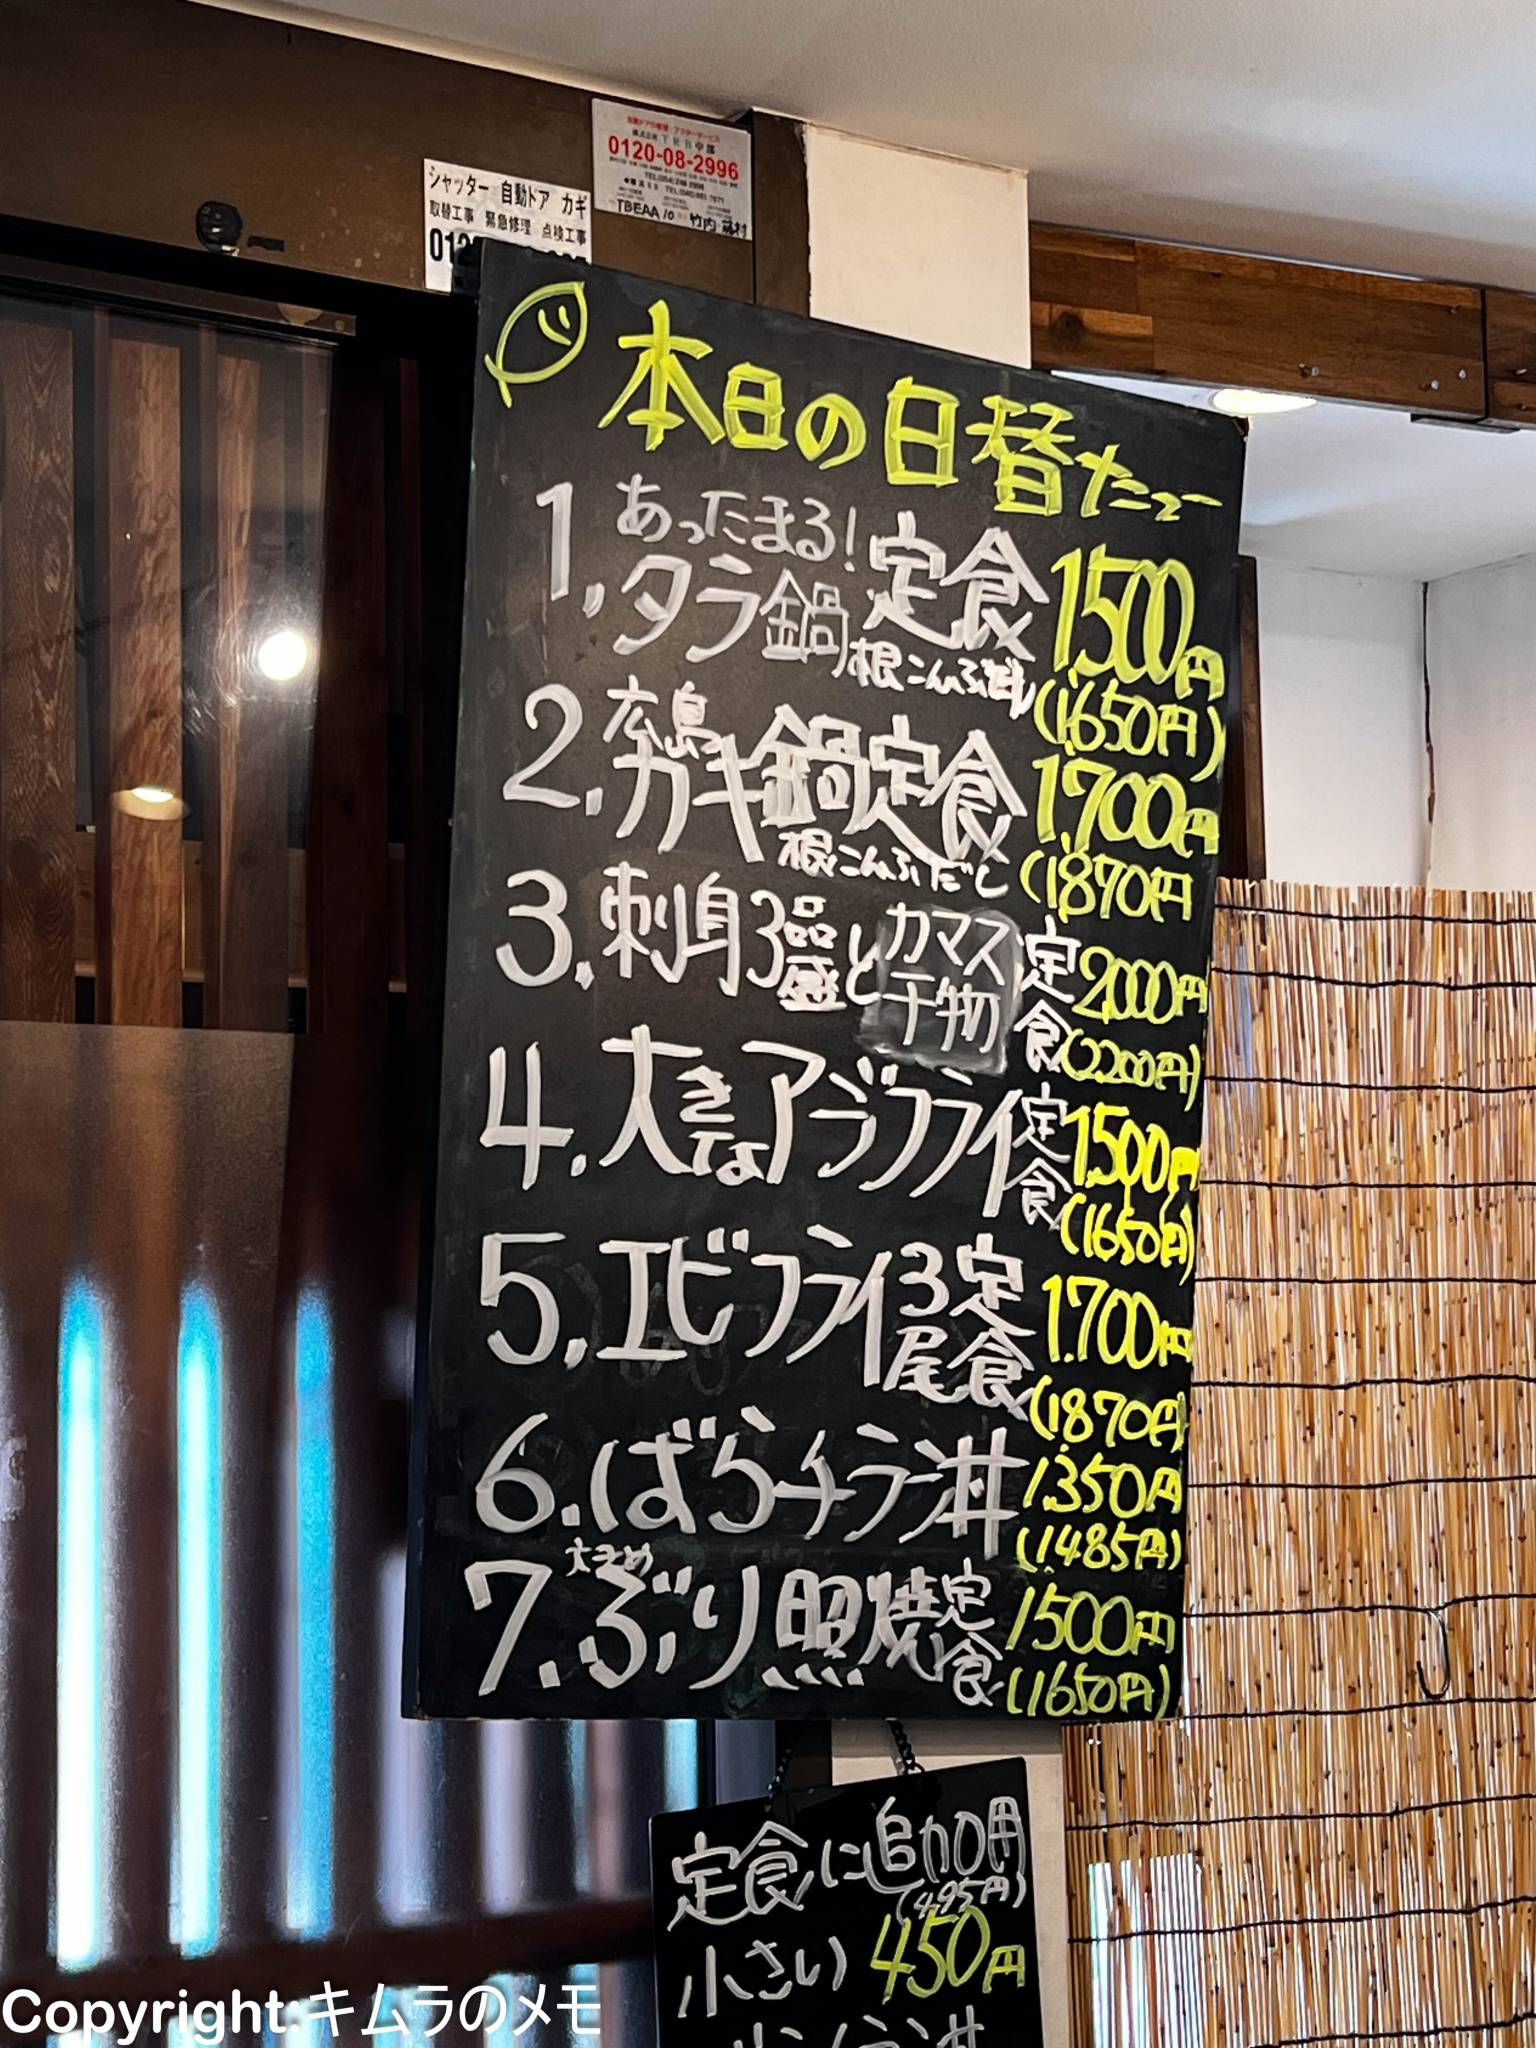 自動ドアの修理・アフターサービス
株式会社 TRB中部
0120-08-2996
シャッター 自動ドア カギ
取替工事 緊急修理 点検工事
本日の日替たニュー
1. あったまる!
タラ鍋定食 1500円
根こんぶだし (1,650円)
2. 広島
カキ鍋定食 1,700円
根こんぶだし (1,870円
3. 刺身3品盛とカマス干物定食 2000円
(2,200円)
4. 大きなアジフライ定食 1,500円
(1650円)
5. エビフライ3尾定食 1.700円
(1870円)
6. ばらチラシ丼 1,350円
(1,485円)
大きめ
7. ぶり照焼定食 1500円
(1650円)
定食に追加用
(495円)
小さい 450円
Copyright:キムラのメモ